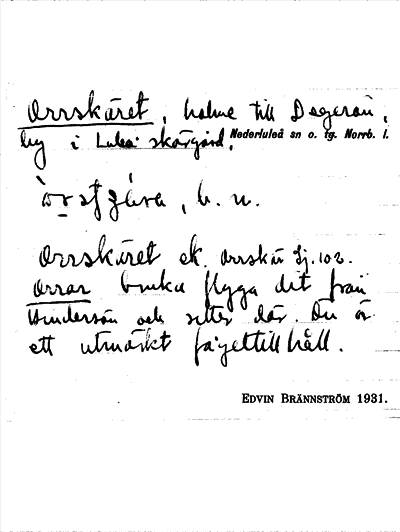 Orrskäret, holme till Degerön,
by i Luleå skärgård. Nederluleå sn o. tg. Norrb. l.
b. n.
Orrskäret ek. Orrskär Sj. 102.
Orrar bruka flyga dit från
Hindersön och sitter där. Du är
ett utmärkt fågeltillhåll.
EDVIN BRÄNNSTRÖM 1931.